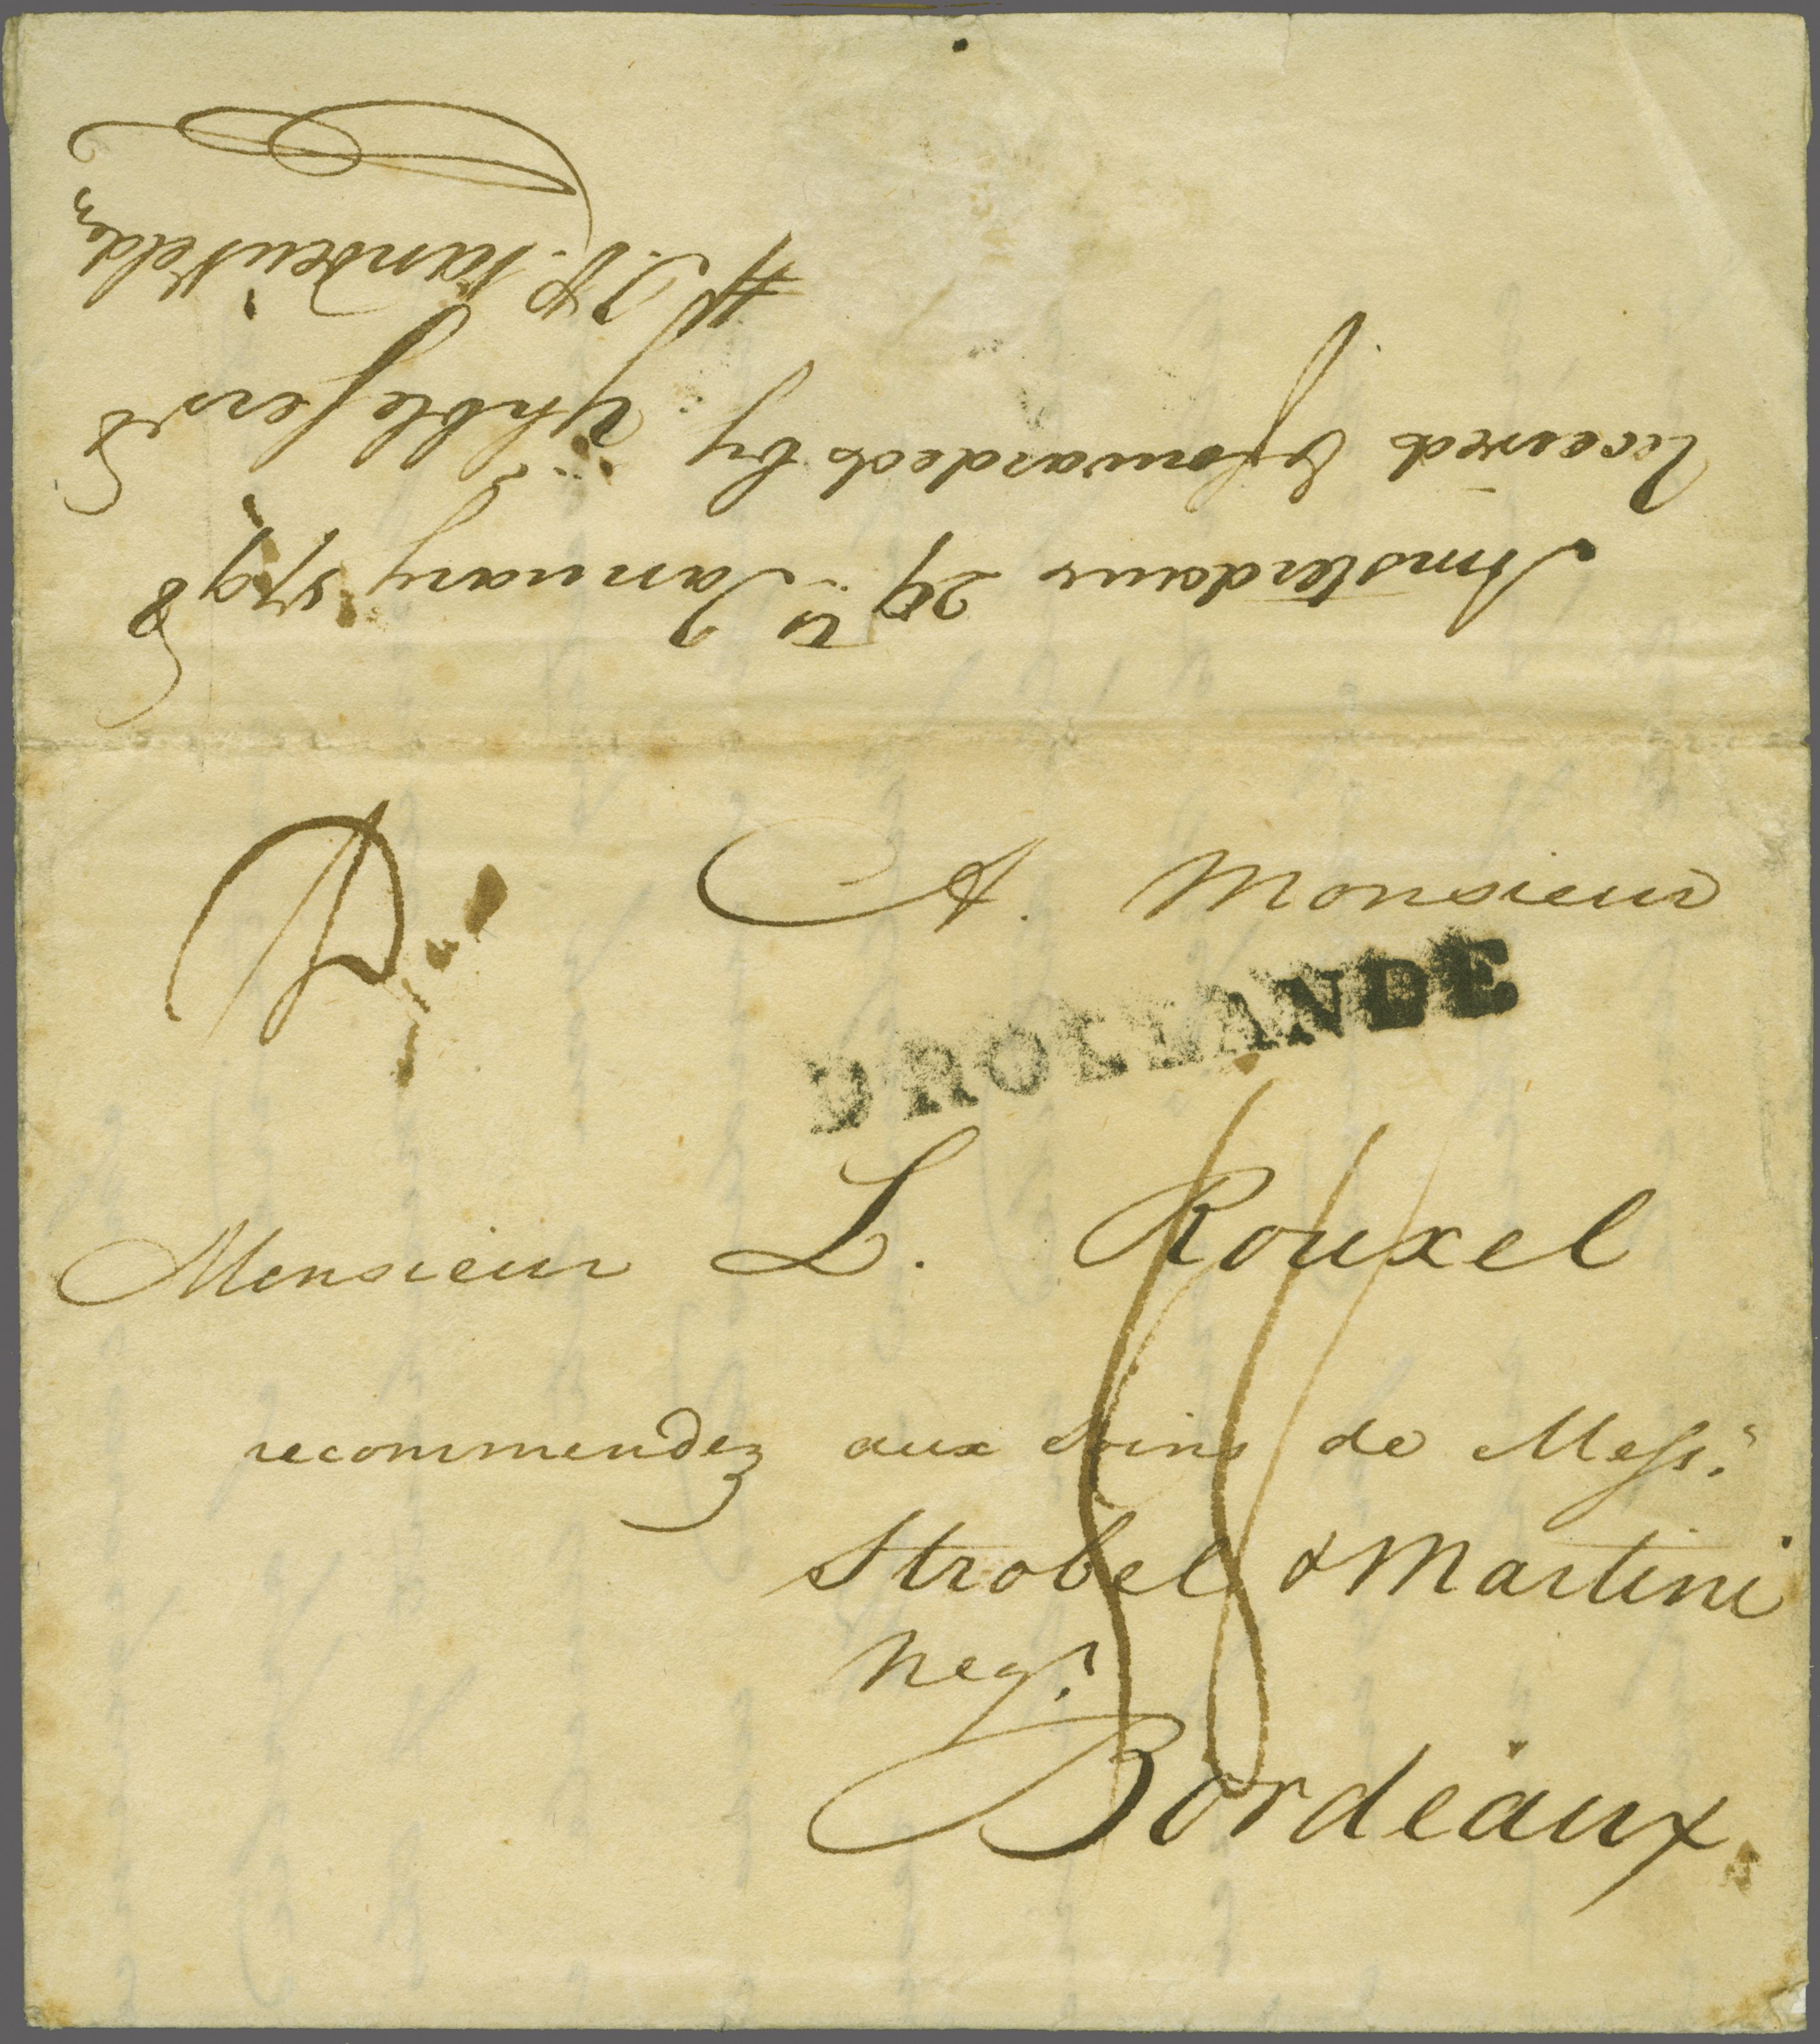 Amsterdam 29 January 1798
Received & forwarded by Yr hble serv.t
H. J. & P. Vander Velden
A. Monsieur
DHOLLANDE
Monsieur L. Rouxel
recommendez aux soins de Mess.rs
Strobel & Martini
Neg.ts
Bordeaux